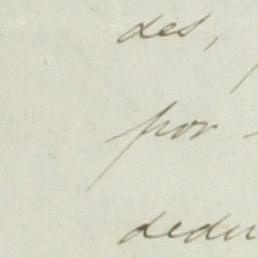 des,
por
dedu